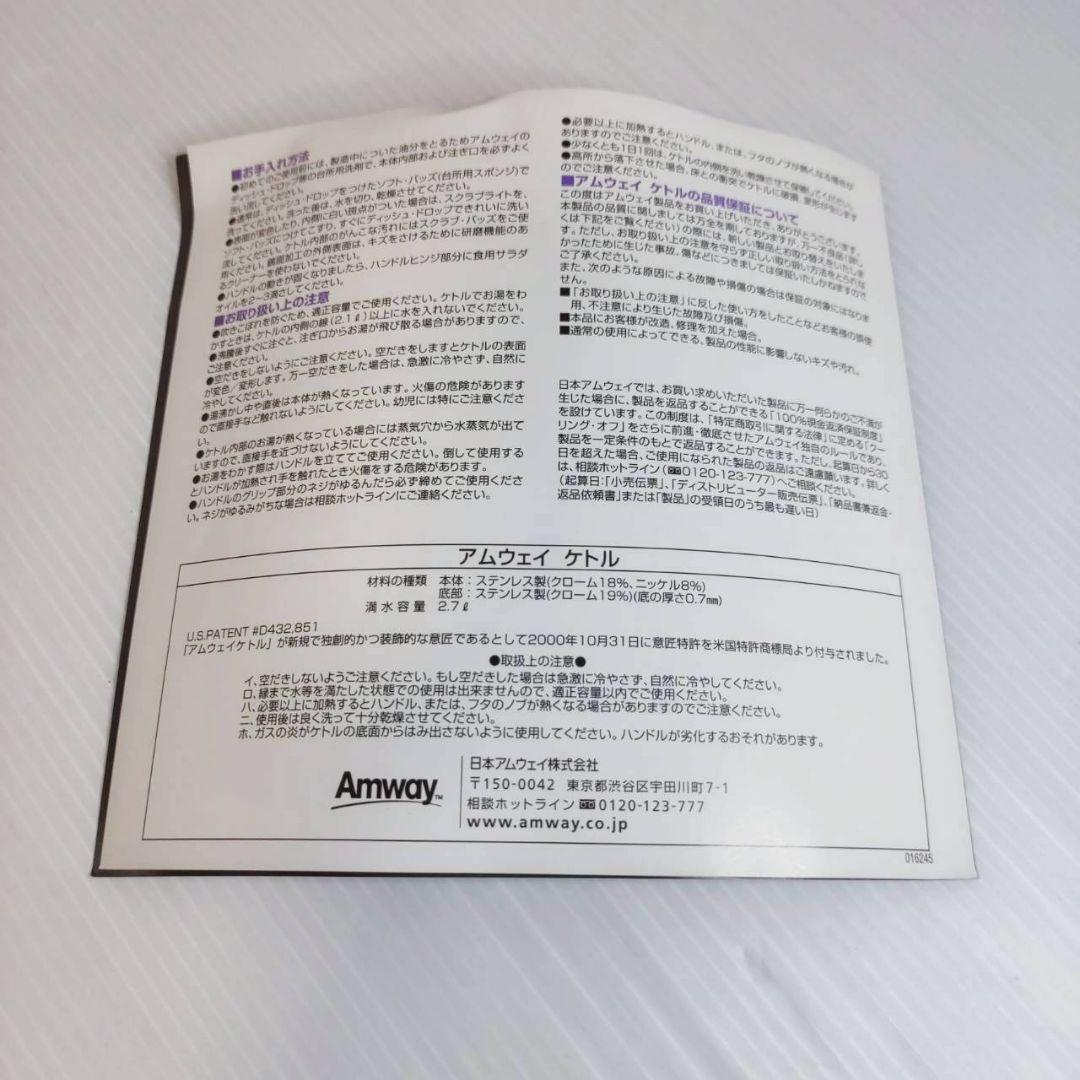 ■お手入れ方法
●初めてのご使用前には、製造中についた油分をとるためアムウェイの
ディッシュ・ドロップ等の台所用洗剤で、本体内部および注ぎ口を必ずよく
洗い流してください。
●通常は、ディッシュ・ドロップをつけたソフト・パッズ(台所用スポンジ)で
洗ってください。洗った後は、水を切り、乾燥させてください。
●表面が変色したり、内側に白い斑点がついた場合は、スクラブライトを、
ソフト・パッズにつけてこすり、すぐにディッシュ・ドロップできれいに洗い
流してください。ケトル内部のがんこな汚れにはスクラブ・バッズをご使
用ください。鏡面加工の外側表面は、キズをさけるために研磨機能のあ
るクリーナーを使わないでください。
●ハンドルの動きが固くなりましたら、ハンドルヒンジ部分に食用サラダ
オイルを2〜3滴さしてください。
■お取り扱い上の注意
●吹きこぼれを防ぐため、適正容量でご使用ください。ケトルでお湯をわ
かすときは、ケトルの内側の線(2.1ℓ)以上に水を入れないでください。
●沸騰後すぐに注ぐと、注ぎ口からお湯が飛び散る場合がありますので、
ご注意ください。
●空だきをしないようにご注意ください。空だきをしますとケトルの表面
が変色/変形します。万一空だきをした場合は、急激に冷やさず、自然に
冷やしてください。
●湯沸かし中や直後は本体が熱くなっています。火傷の危険があります
ので直接手など触れないようにしてください。幼児には特にご注意くださ
い。
●ケトル内部のお湯が熱くなっている場合には蒸気穴から水蒸気が出て
いますので、直接手を近づけないようにしてください。
●お湯をわかす際はハンドルを立ててご使用ください。倒して使用する
とハンドルが加熱され手を触れたとき火傷をする危険があります。
●ハンドルのグリップ部分のネジがゆるんだら必ず締めてご使用くださ
い。ネジがゆるみがちな場合は相談ホットラインにご連絡ください。
●必要以上に加熱するとハンドル、または、フタのノブが熱くなる場合が
ありますのでご注意ください。
●少なくとも1日1回は、ケトルの内側を洗い乾燥させて保管してください。
●高所から落下させた場合、床との衝突でケトルに破損、変形が生じます
のでご注意ください。
■アムウェイ ケトルの品質保証について
この度はアムウェイ製品をお買い上げいただき、ありがとうございます。
本製品の品質に関しましては万全を期しておりますが、万一不良品(詳し
くは下記をご覧ください)の際には、新しい製品とお取り替えをいたしま
す。ただし、お取り扱い上の注意を守らず正しい取り扱い方法をとられな
かったために生じた事故、傷などにつきましては保証いたしかねますので
ご了承ください。
また、次のような原因による故障や損傷の場合は保証の対象にはなりま
せん。
■「お取り扱い上の注意」に反した使い方をしたことなどお客様の誤使
用、不注意により生じた故障及び損傷。
■本品にお客様が改造、修理を加えた場合。
■通常の使用によってできる、製品の性能に影響しないキズや汚れ。
日本アムウェイでは、お買い求めいただいた製品に万一何らかのご不満が
生じた場合に、製品を返品することができる「100%現金返済保証制度」
を設けています。この制度は、「特定商取引に関する法律」に定める「クー
リング・オフ」をさらに前進・徹底させたアムウェイ独自のルールであり、
製品を一定条件のもとで返品することができます。ただし、起算日から30
日を超えた場合、ご使用になられた製品の返品はご遠慮願います。詳しく
は、相談ホットライン(0120-123-777)へご相談ください。
(起算日:「小売伝票」、「ディストリビューター販売伝票」、「納品書兼返金・
返品依頼書」または「製品」の受領日のうち最も遅い日)
アムウェイ ケトル
材料の種類 本体:ステンレス製(クローム18%、ニッケル8%)
底部:ステンレス製(クローム19%)(底の厚さ0.7mm)
満水容量 2.7ℓ
U.S.PATENT #D432,851
「アムウェイケトル」が新規で独創的かつ装飾的な意匠であるとして2000年10月31日に意匠特許を米国特許商標局より付与されました。
●取扱上の注意●
イ、空だきしないようご注意ください。もし空だきした場合は急激に冷やさず、自然に冷やしてください。
ロ、縁まで水等を満たした状態での使用は出来ませんので、適正容量以内でご使用ください。
ハ、必要以上に加熱するとハンドル、または、フタのノブが熱くなる場合がありますのでご注意ください。
ニ、使用後は良く洗って十分乾燥させてください。
ホ、ガスの炎がケトルの底面からはみ出さないように使用してください。ハンドルが劣化するおそれがあります。
Amway™
日本アムウェイ株式会社
〒150-0042 東京都渋谷区宇田川町7-1
相談ホットライン 0120-123-777
www.amway.co.jp
016245